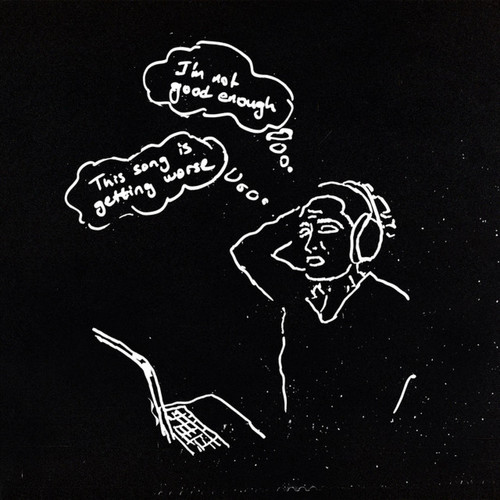 I'm not
good enough
This song is
getting worse